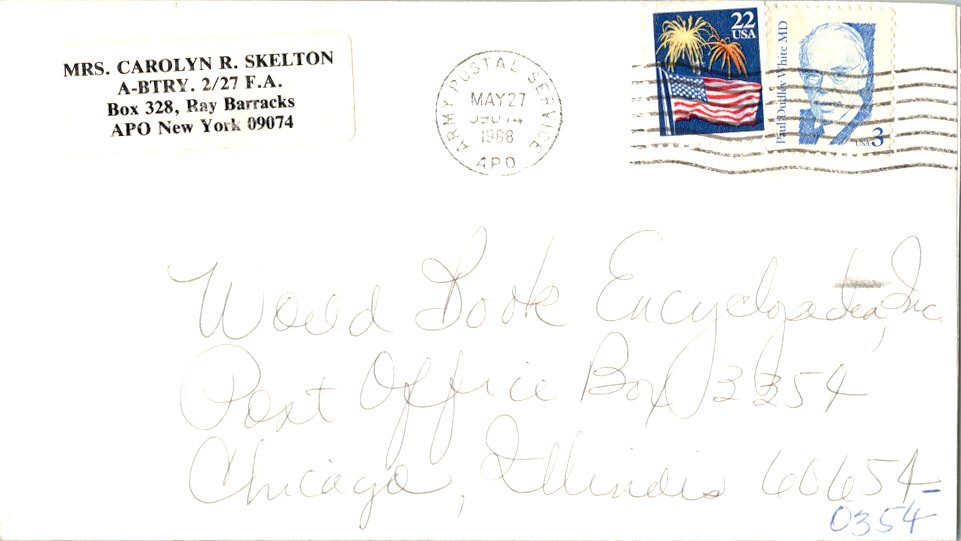 MRS. CAROLYN R. SKELTON
A-BTRY. 2/27 F.A.
Box 328, Ray Barracks
APO New York 09074
ARMY POSTAL SERVICE
MAY 27
09074
1988
APO
22
USA
Paul Dudley White MD
USA 3
World Book Encyclopedia, Inc.
Post Office Box 3354
Chicago, Illinois 60654-
0354